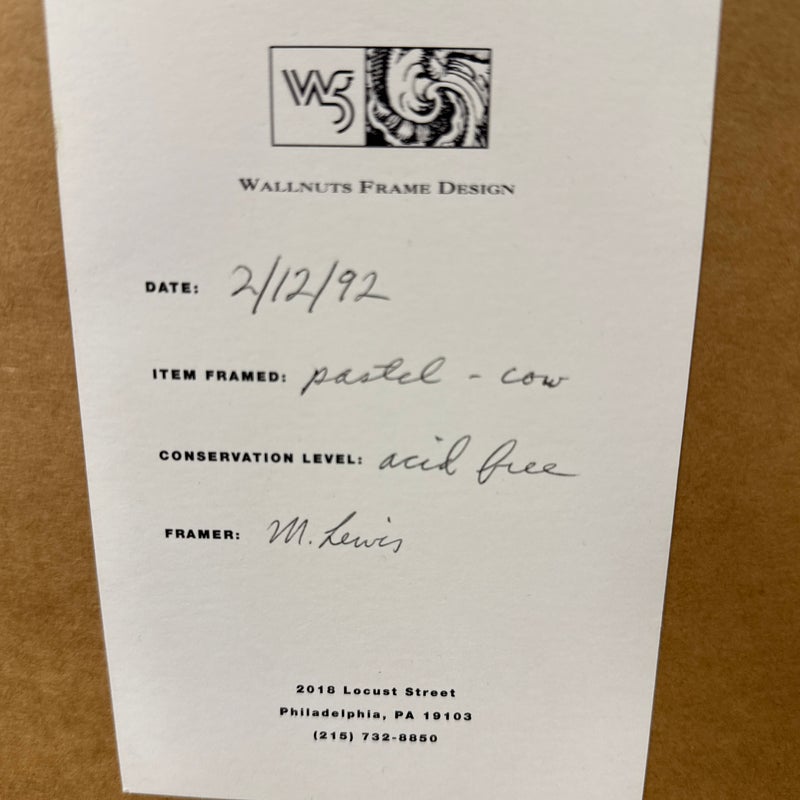 W5
WALLNUTS FRAME DESIGN
DATE: 2/12/92
ITEM FRAMED: pastel - cow
CONSERVATION LEVEL: acid free
FRAMER: M. Lewis
2018 Locust Street
Philadelphia, PA 19103
(215) 732-8850